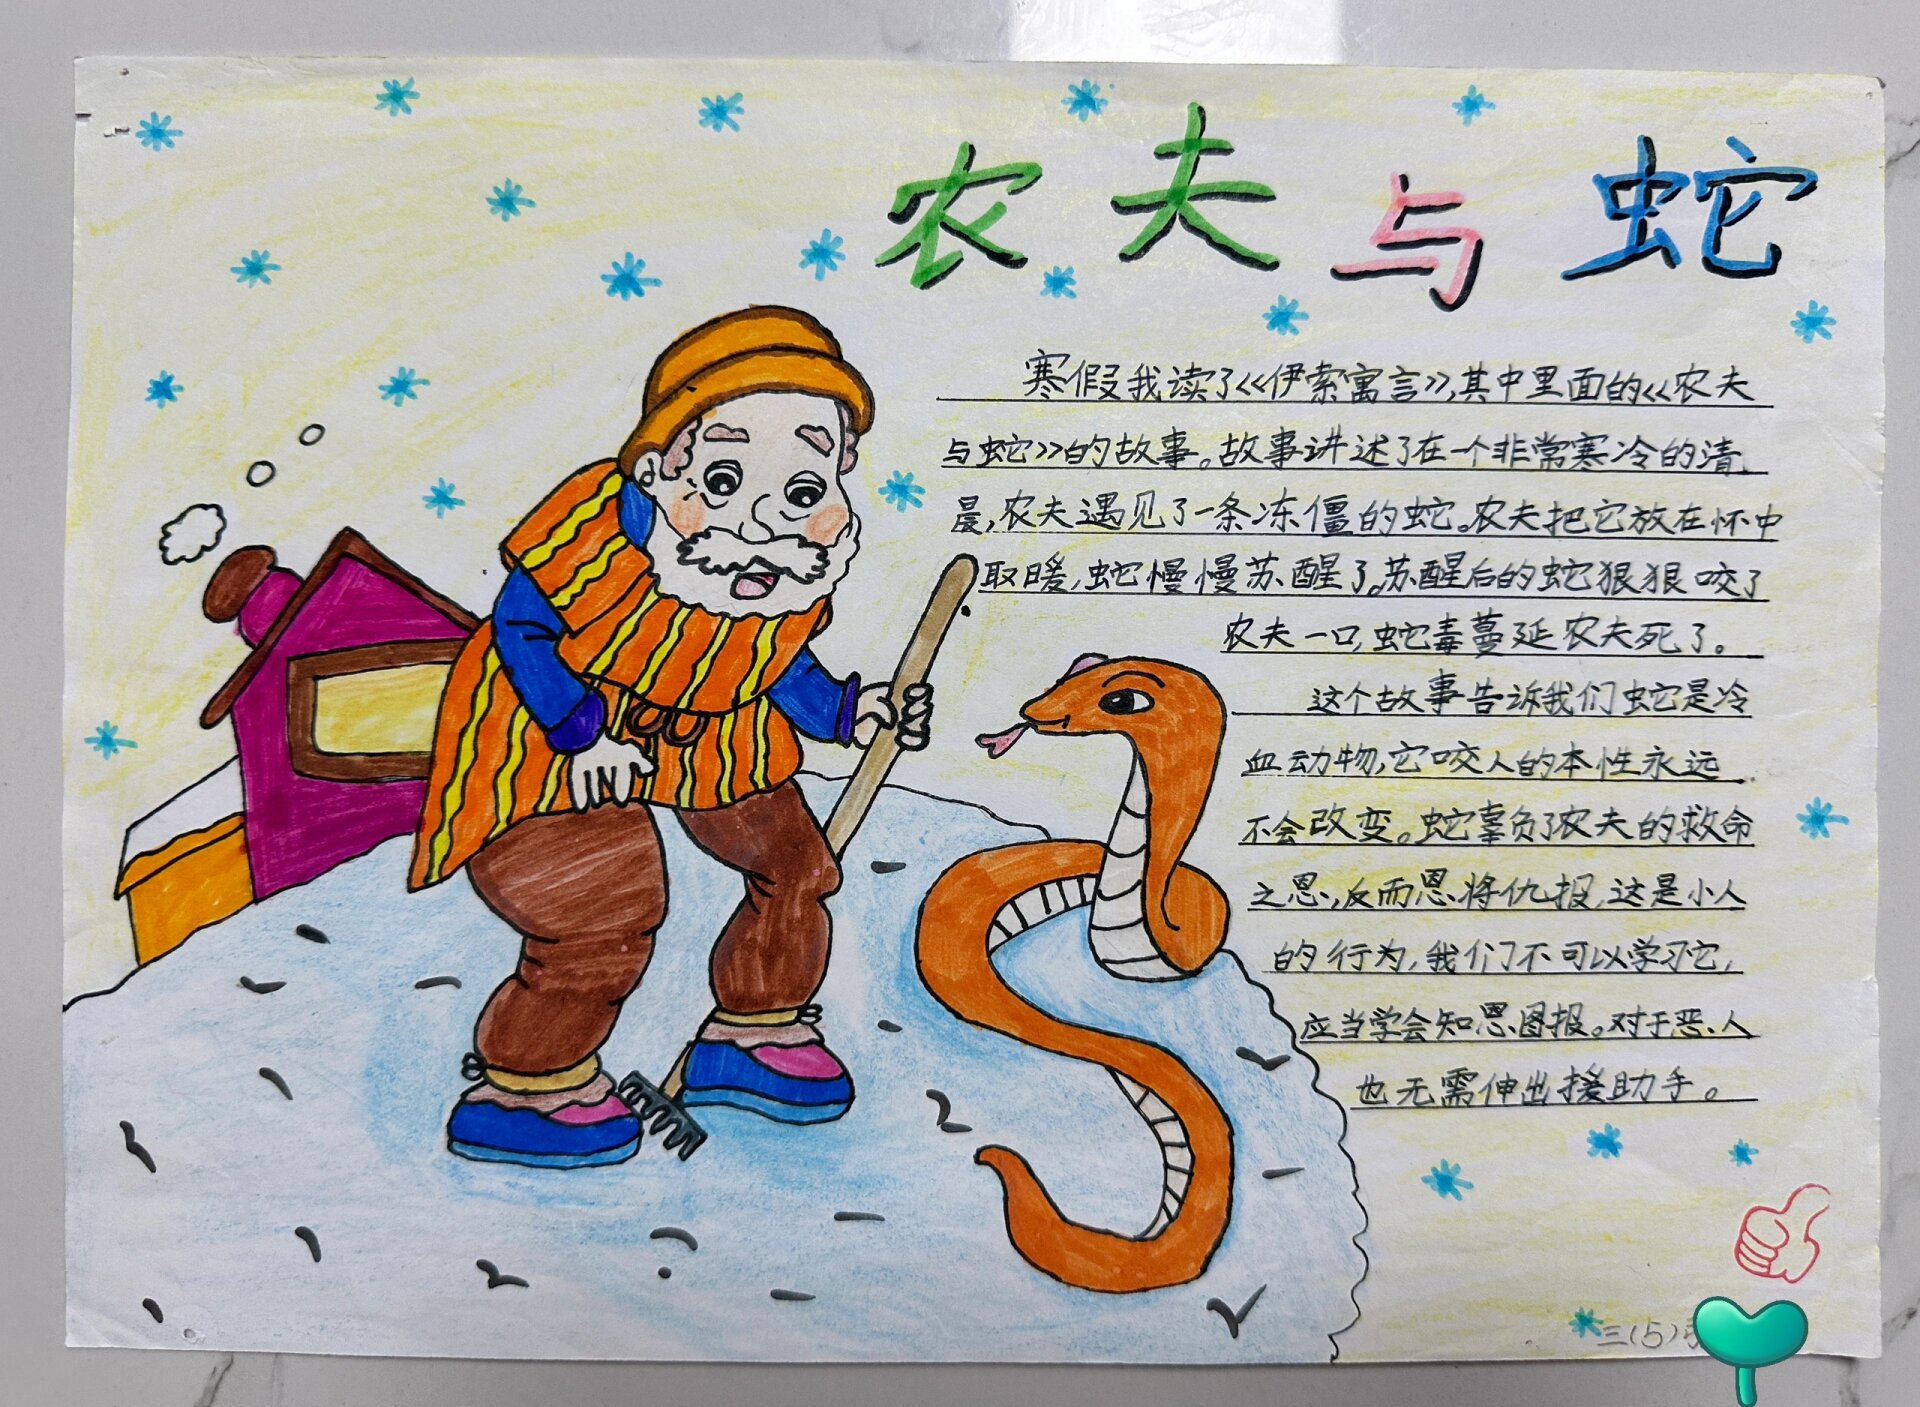 农夫与蛇
寒假我读了《伊索寓言》,其中里面的《农夫
与蛇》的故事。故事讲述了在一个非常寒冷的清
晨,农夫遇见了一条冻僵的蛇。农夫把它放在怀中
取暖,蛇慢慢苏醒了。苏醒后的蛇狠狠咬了
农夫一口,蛇毒蔓延农夫死了。
这个故事告诉我们蛇是冷
血动物,它咬人的本性永远
不会改变。蛇辜负了农夫的救命
之恩,反而恩将仇报,这是小人
的行为,我们不可以学习它,
应当学会知恩图报。对于恶人
也无需伸出援助手。
三(5)